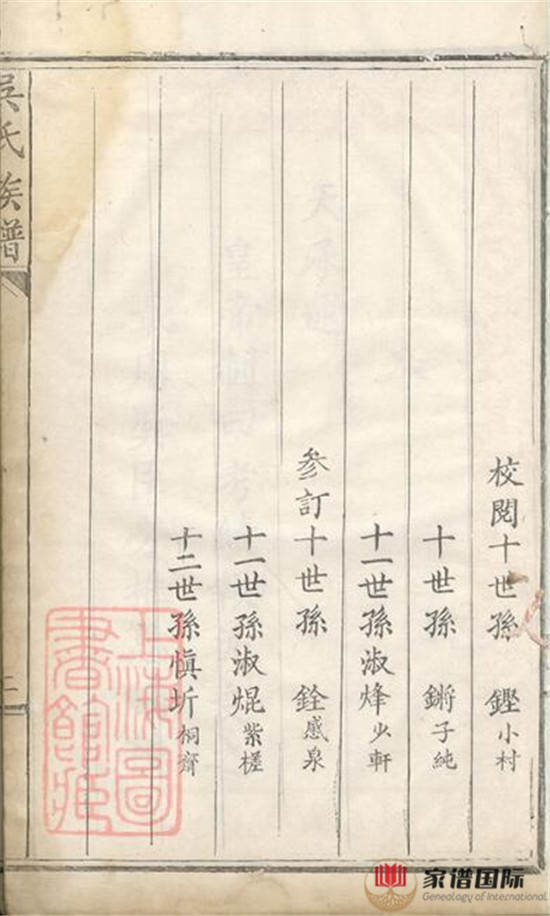 校閱十世孫 鏗小村
十世孫 鏘子純
十一世孫淑烽少軒
參訂十世孫 銓感泉
十一世孫淑焜紫槎
十二世孫慎圻桐齋
吳氏族譜
二
上海圖書館藏
家谱国际
Genealogy of International